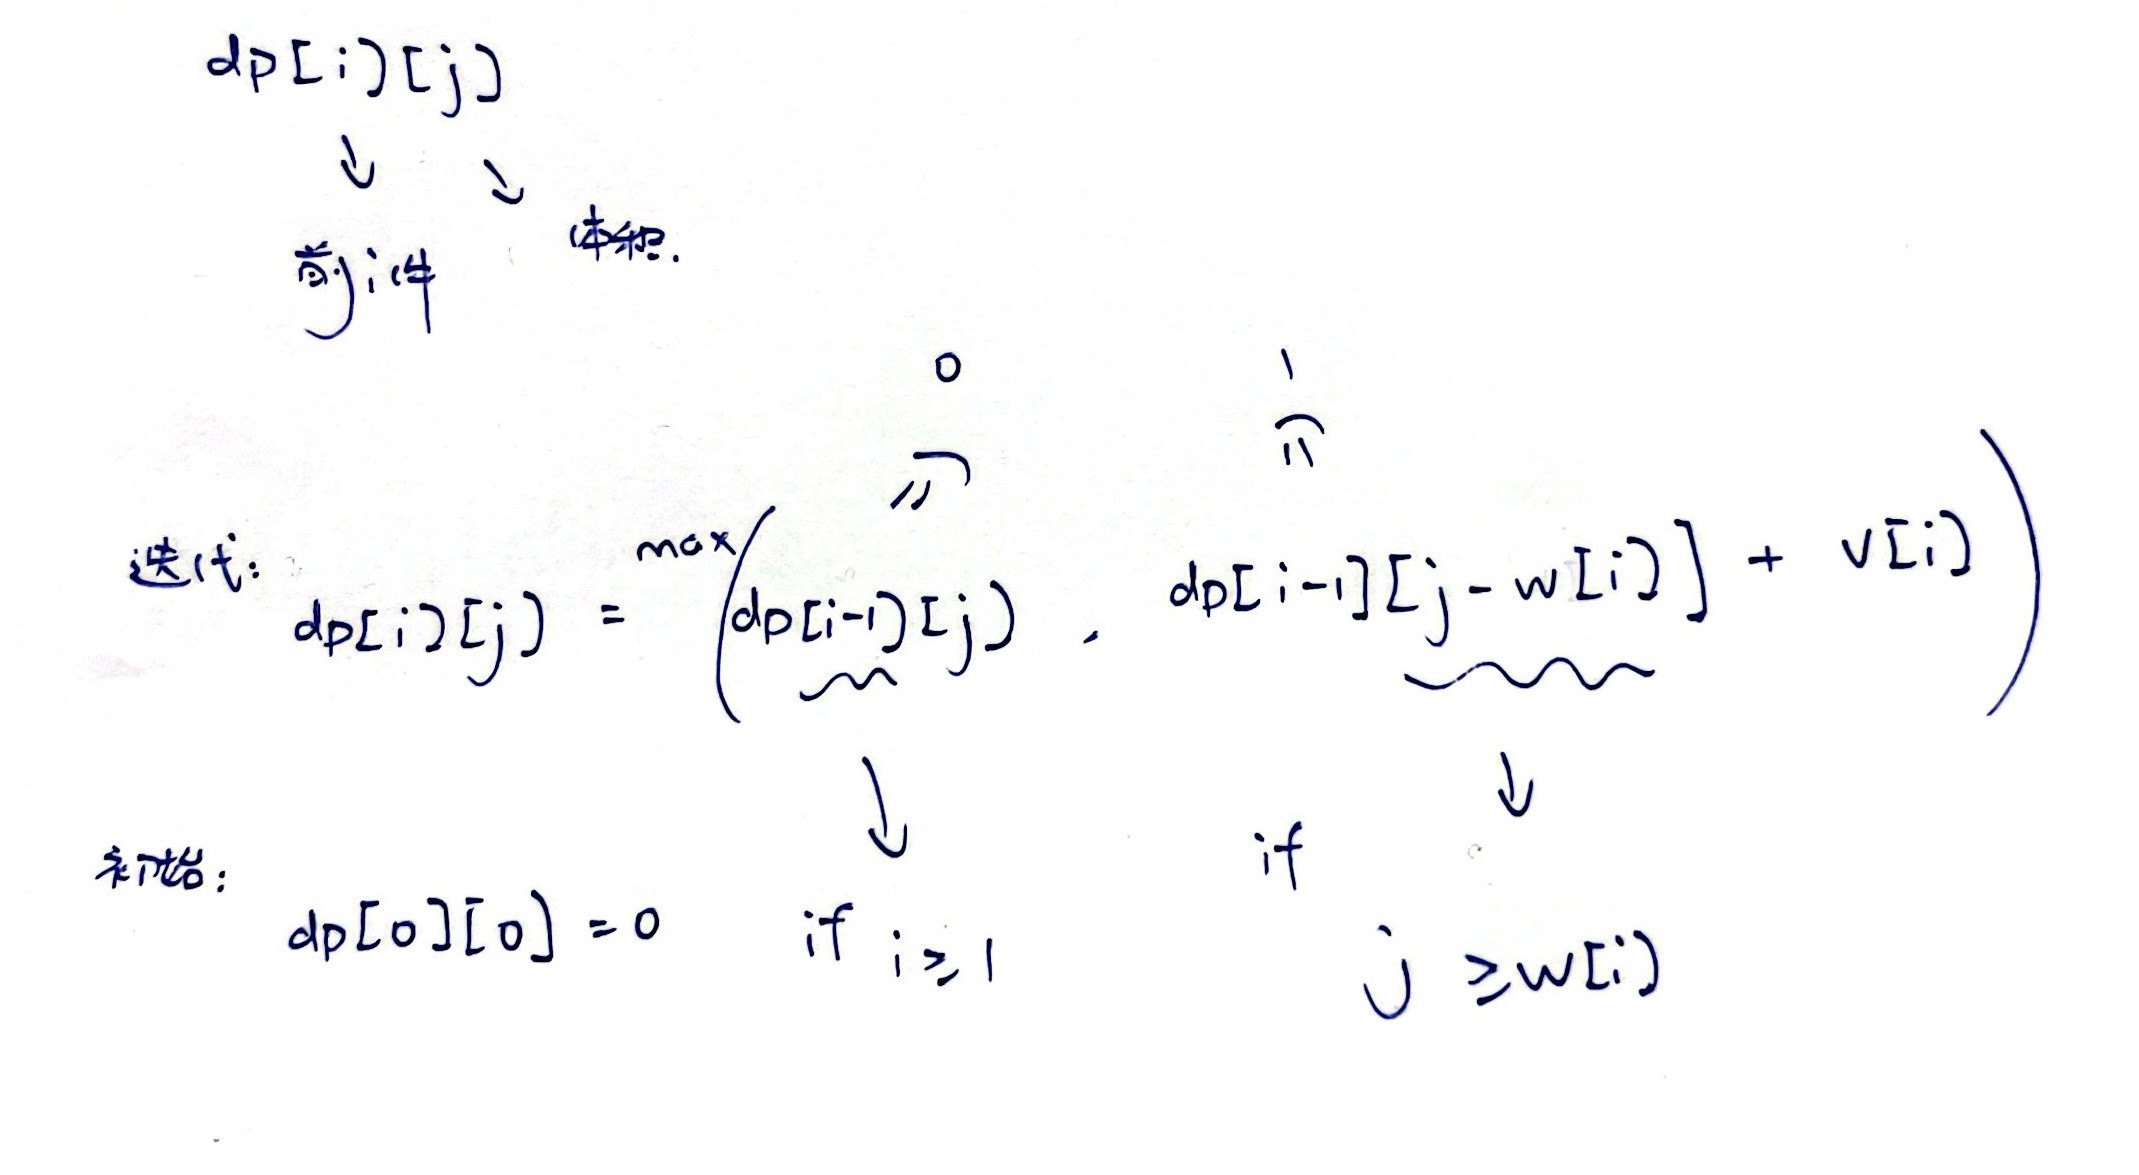 dp[i][j]
↓ ↘
前i件 体积.
0 1
迭代: dp[i][j] = max(dp[i-1][j], dp[i-1][j-w[i]] + v[i])
↓ ↓
初始: dp[0][0]=0 if i≥1 if j≥w[i]